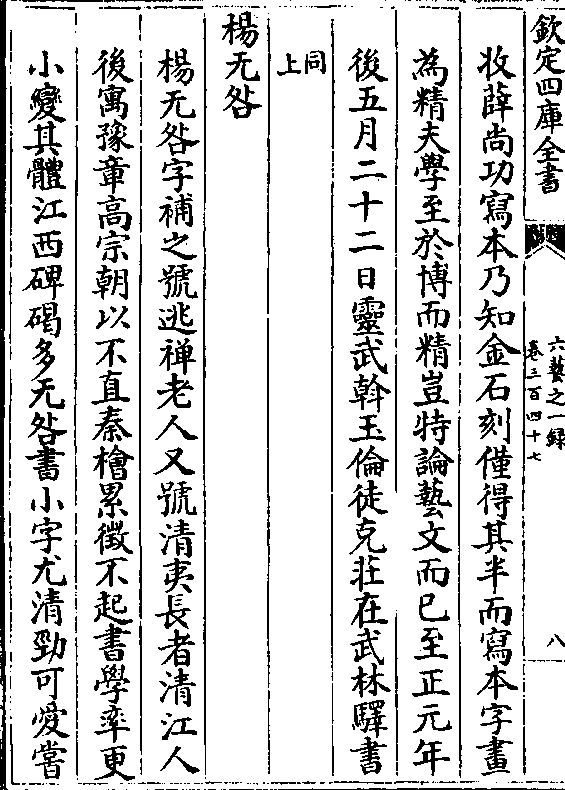 欽定四庫全書
六藝之一録
卷三百四十七
八
收薛尚功寫本乃知金石刻僅得其半而寫本字畫
為精夫學至於博而精豈特論藝文而已至正元年
後五月二十二日靈武斡玉倫徒克莊在武林驛書
同上
楊无咎
楊无咎字補之號逃禅老人又號清夷長者清江人
後寓豫章髙宗朝以不直秦檜累徴不起書學率更
小變其體江西碑碣多无咎書小字尤清勁可愛嘗